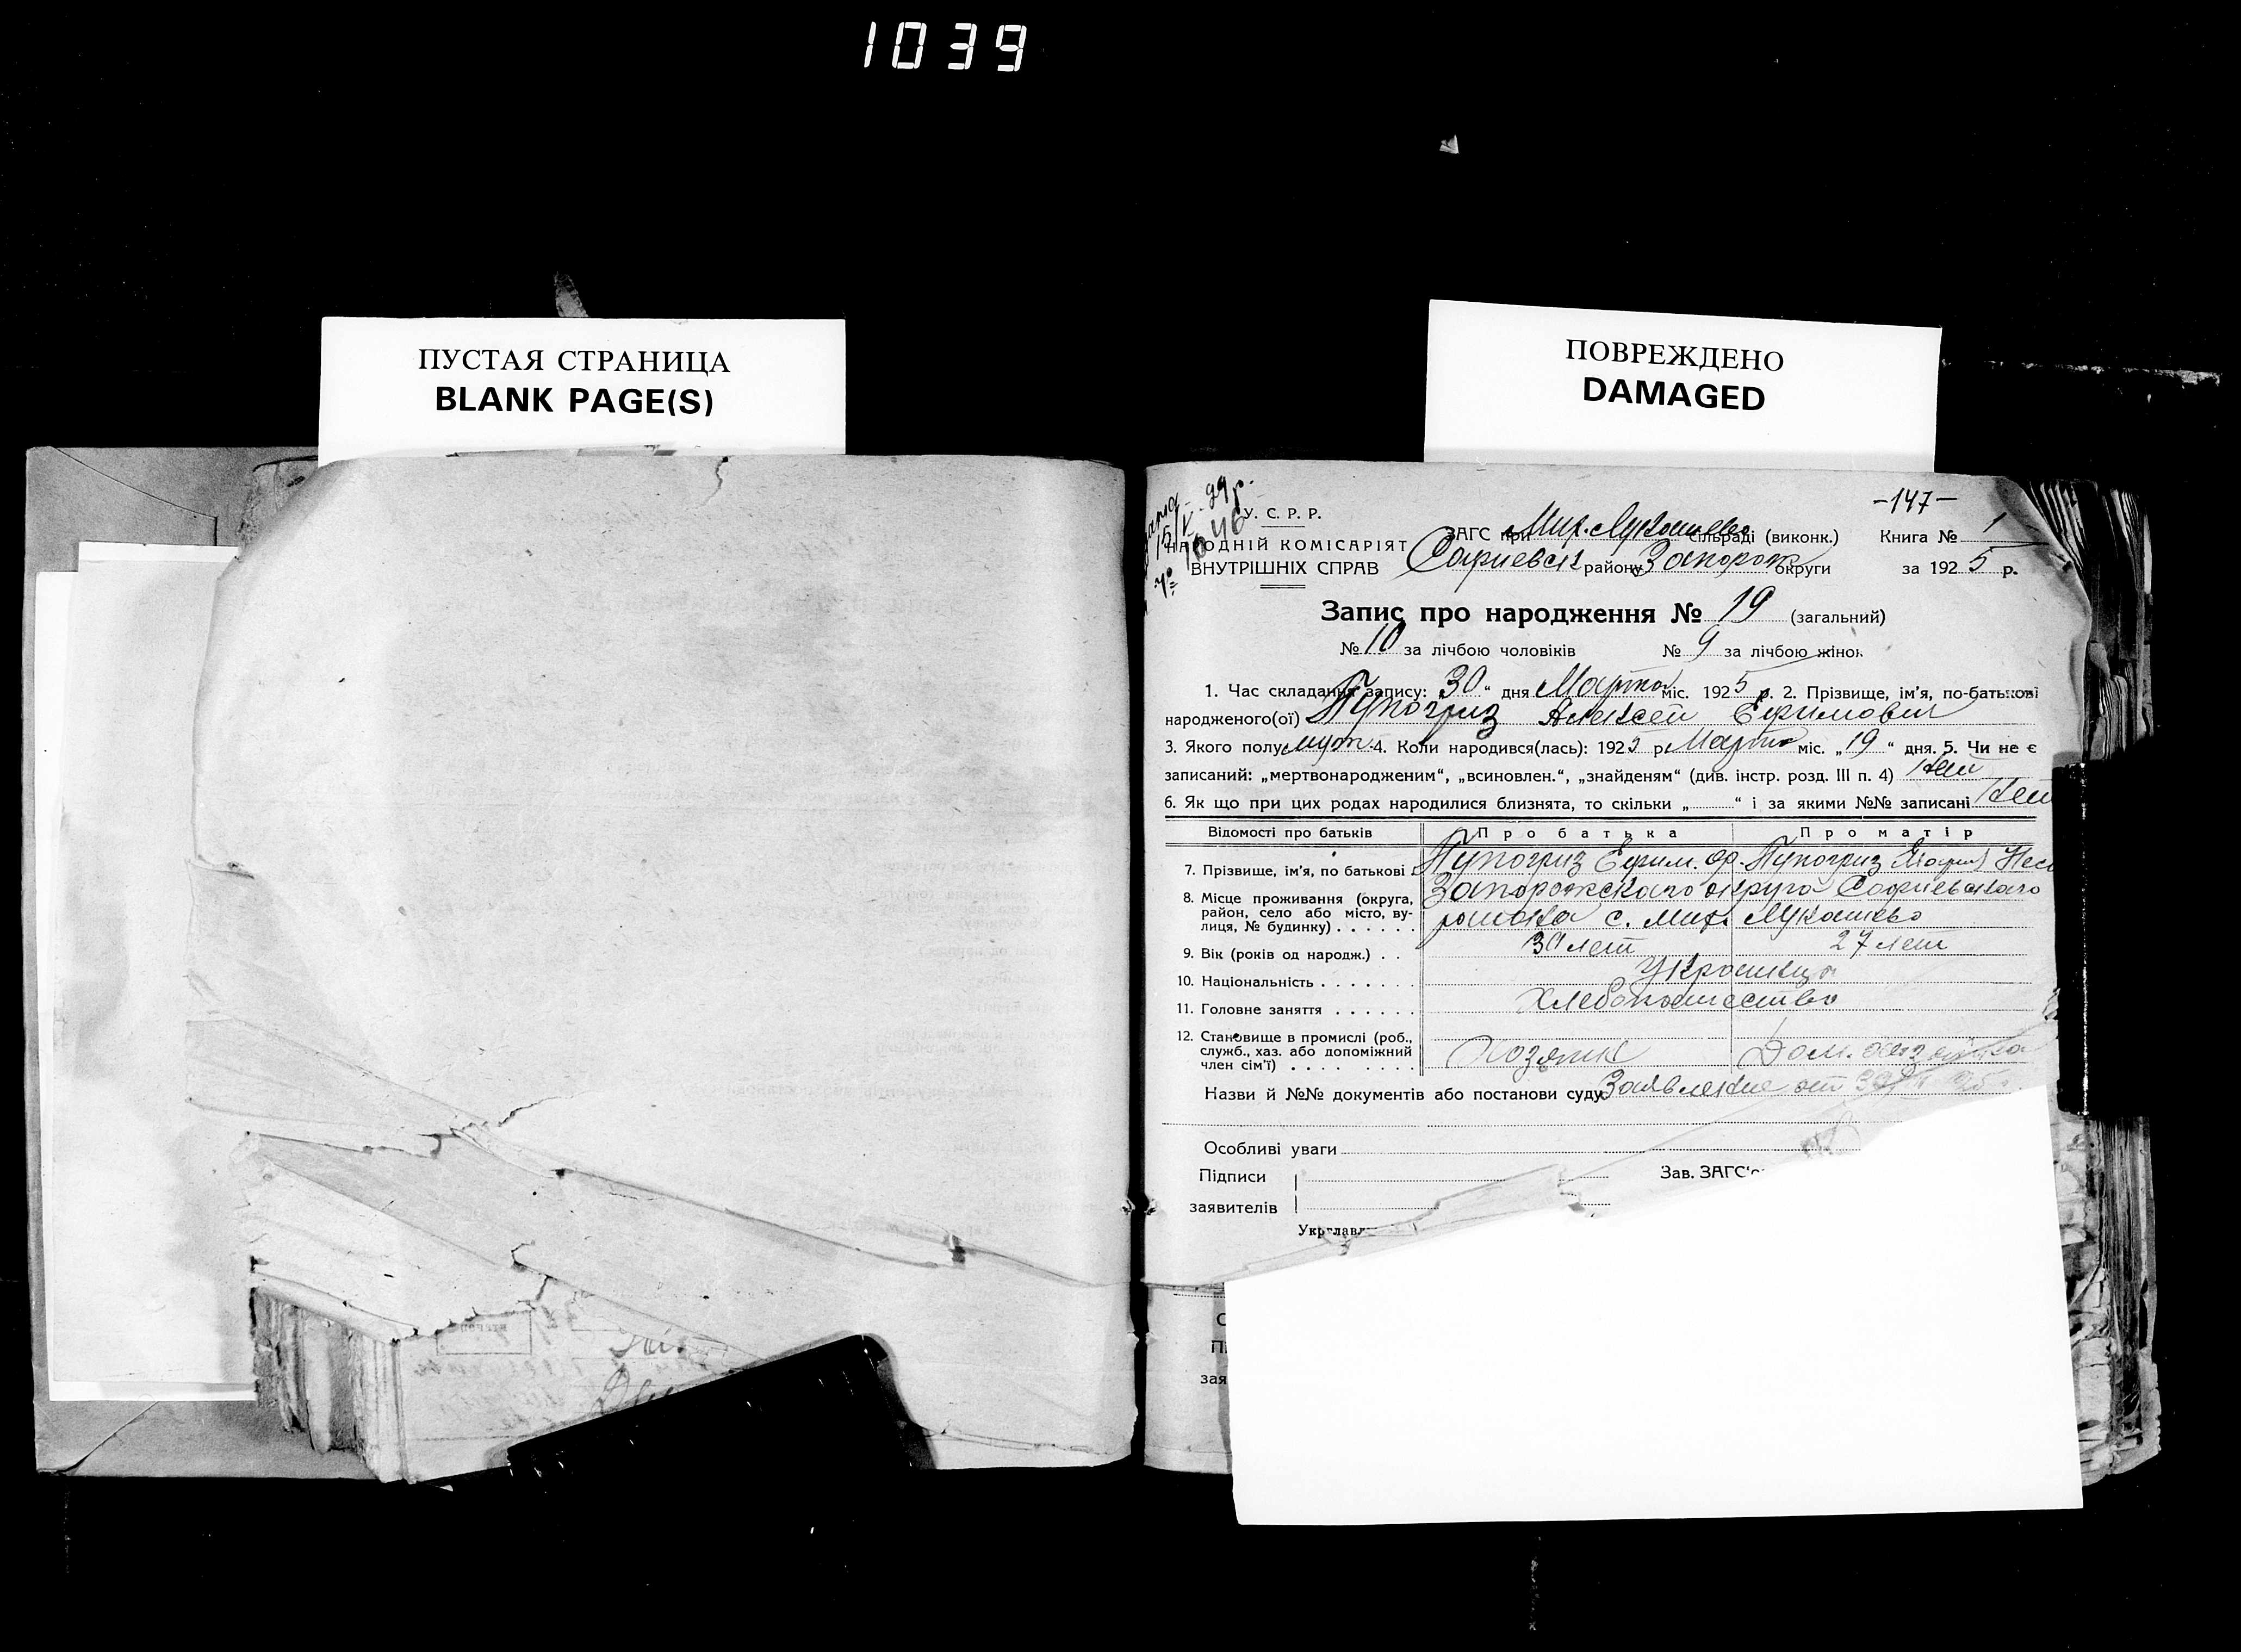 1039
ПУСТАЯ СТРАНИЦА
BLANK PAGE(S)
ПОВРЕЖДЕНО
DAMAGED
-147-
У. С. Р. Р.
НАРОДНІЙ КОМІСАРІЯТ
ВНУТРІШНІХ СПРАВ
ЗАГС при Мих. Лукашево сільраді (виконк.) Книга № 1
Софиевск району Запорож округи за 1925 р.
Запис про народження № 19 (загальний)
№ 10 за лічбою чоловіків № 9 за лічбою жінок
1. Час складання запису: 30 " дня Марта міс. 1925 р. 2. Прізвище, ім'я, по-батькові
народженого(ої) Пупогриз Алексей Ефимович
3. Якого полу муж. 4. Коли народився(лась): 1925 р. Марта міс. „19 " дня. 5. Чи не є
записаний: „мертвонародженим", „всиновлен.", „знайденям" (див. інстр. розд. III п. 4) Нет
6. Як що при цих родах народилися близнята, то скільки „ " і за якими №№ записані Нет
Відомості про батьків Про батька Про матір
7. Прізвище, ім'я, по батькові Пупогриз Ефим. Пупогриз
8. Місце проживання (округа, район, село або місто, вулиця, № будинку) Запорожского округа Софиевского
района с. Мих. Лукашево
9. Вік (років од народж.) 30 лет 27 лет
10. Національність Украинца
11. Головне заняття Хлебопашество
12. Становище в промислі (роб., служб., хаз. або допоміжний член сім'ї) Хозяин Дом. хозяйка
Назви й №№ документів або постанови суду Заявление от
Особливі уваги
Підписи Зав. ЗАГС'
заявителів
Укрглавл